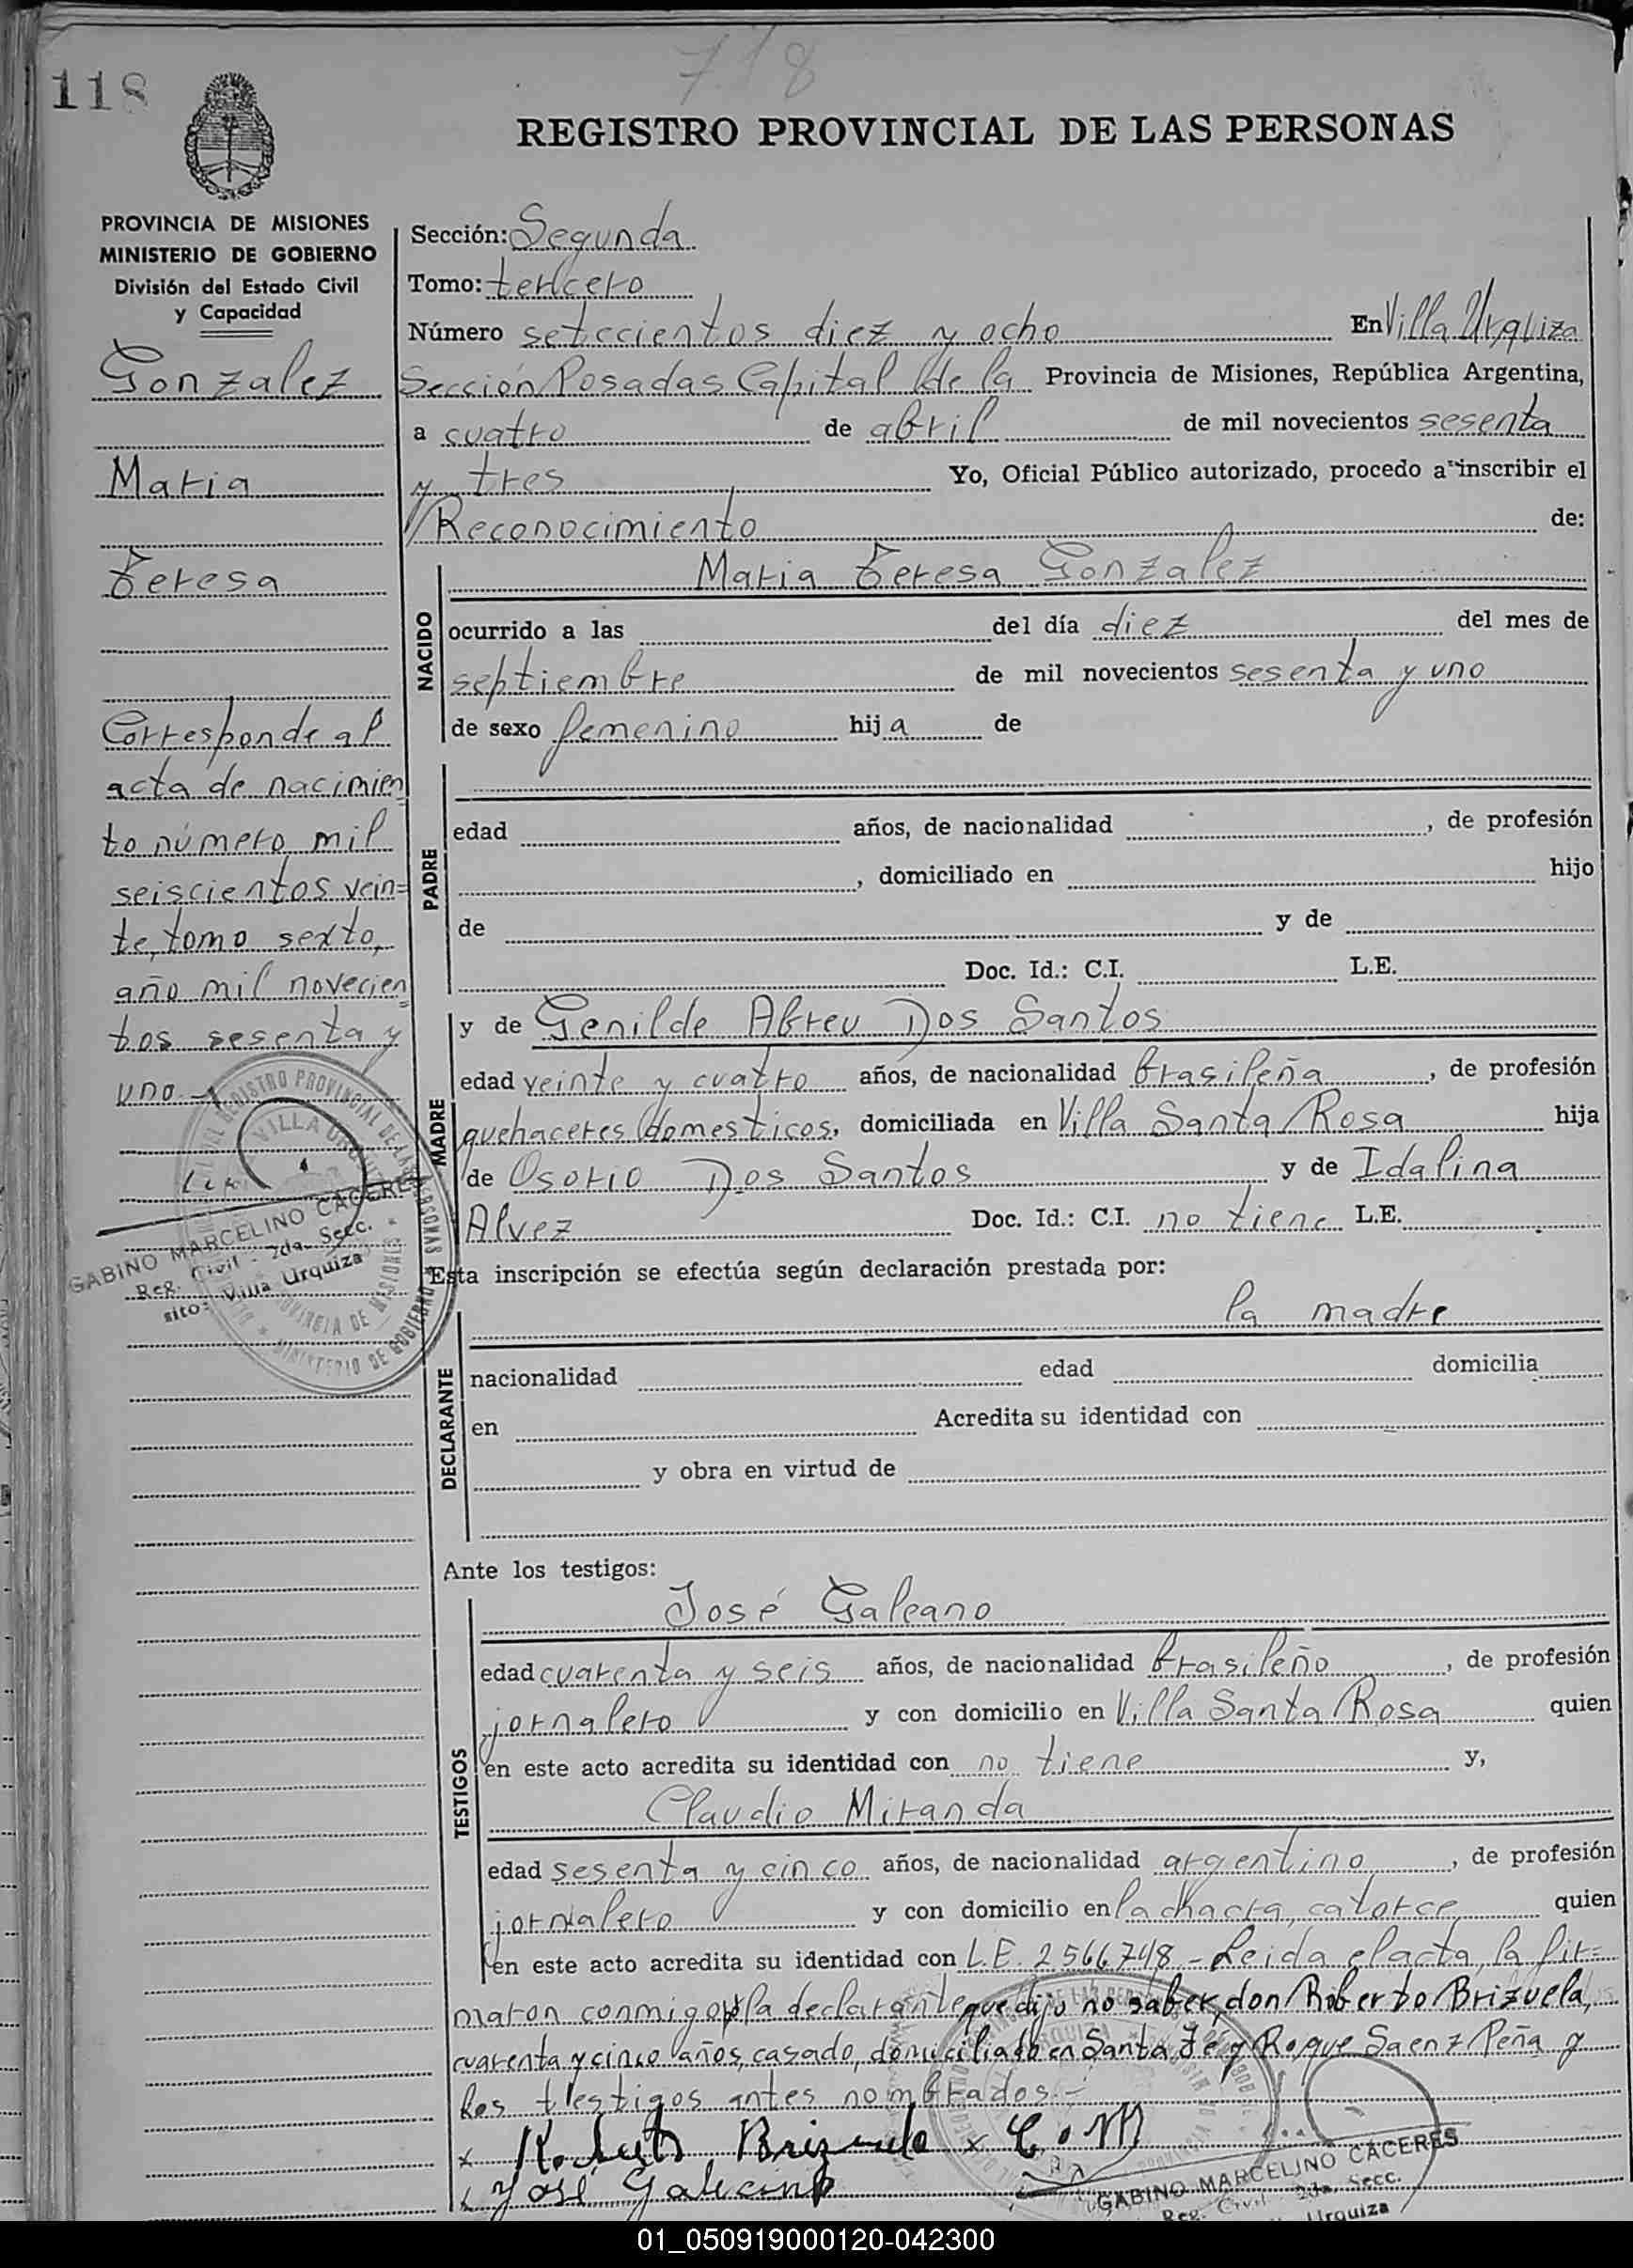 118
718
REGISTRO PROVINCIAL DE LAS PERSONAS
PROVINCIA DE MISIONES
MINISTERIO DE GOBIERNO
División del Estado Civil
y Capacidad
Gonzalez
Maria
Teresa
Corresponde al
acta de nacimien
to número mil
seiscientos vein=
te, tomo sexto,
año mil novecien
=
tos sesenta y
uno
GABINO MARCELINO CACERES
Reg. Civil - 2da. Secc.
sito: Villa Urquiza
Sección: Segunda
Tomo: tercero
Número setecientos diez y ocho En Villa Urquiza
Sección Posadas Capital de la Provincia de Misiones, República Argentina,
a cuatro de abril de mil novecientos sesenta
y tres Yo, Oficial Público autorizado, procedo a inscribir el
Reconocimiento de:
NACIDO
Maria Teresa Gonzalez
ocurrido a las del día diez del mes de
septiembre de mil novecientos sesenta y uno
de sexo femenino hija de
PADRE
edad años, de nacionalidad , de profesión
, domiciliado en hijo
de y de
Doc. Id.: C.I. L.E.
MADRE
y de Genilde Abreu Dos Santos
edad veinte y cuatro años, de nacionalidad brasileña , de profesión
quehaceres domesticos, domiciliada en Villa Santa Rosa hija
de Osorio Dos Santos y de Idalina
Alvez Doc. Id.: C.I. no tiene L.E.
Esta inscripción se efectúa según declaración prestada por:
DECLARANTE
la madre
nacionalidad edad domicilia
en Acredita su identidad con
y obra en virtud de
Ante los testigos:
TESTIGOS
José Galeano
edad cuarenta y seis años, de nacionalidad brasileño , de profesión
jornalero y con domicilio en Villa Santa Rosa quien
en este acto acredita su identidad con no tiene y,
Claudio Miranda
edad sesenta y cinco años, de nacionalidad argentino , de profesión
jornalero y con domicilio en la chacra, catorce quien
en este acto acredita su identidad con L.E. 2566748 - Leida el acta, la fir=
maron conmigo la declarante que dijo no saber, don Roberto Brizuela,
cuarenta y cinco años, casado, domiciliado en Santa Fe y Roque Saenz Peña y
los testigos antes nombrados.-
x Roberto Brizuela x C. M
x José Galeano
GABINO MARCELINO CACERES
Reg. Civil 2da. Secc.
Urquiza
01_050919000120-042300